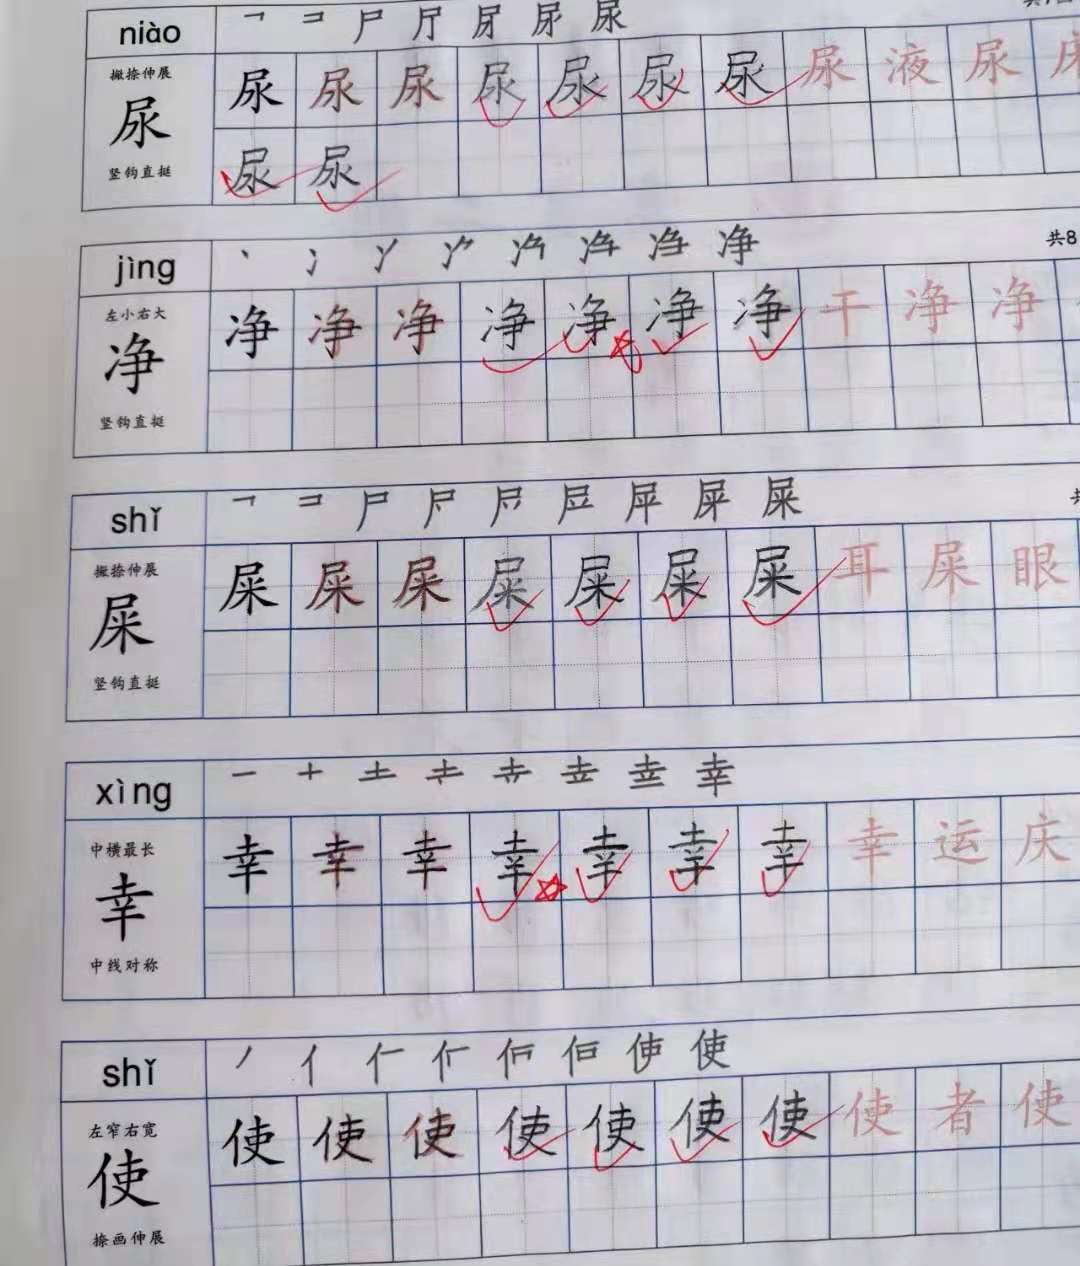 niào 𠃍 コ 尸 尸 尿 尿 尿
撇捺伸展 尿 尿 尿 尿 尿 尿 尿 尿 液 尿 床
尿
竖钩直挺 尿 尿
jìng 丶 冫 净
共8
左小右大 净 净 净 净 净 净 净 干 净 净
净
竖钩直挺
shǐ コ 尸 屎
撇捺伸展 屎 屎 屎 屎 屎 屎 屎 耳 屎 眼
屎
竖钩直挺
xìng 一 十 土 幸
中横最长 幸 幸 幸 幸 幸 幸 幸 幸 运 庆
幸
中线对称
shǐ 丿 亻 使
左窄右宽 使 使 使 使 使 使 使 使 者 使
使
捺画伸展